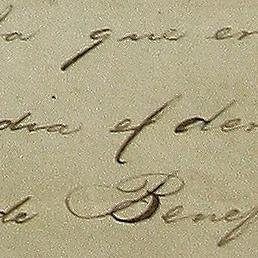 la que en
dia el den
de Benef